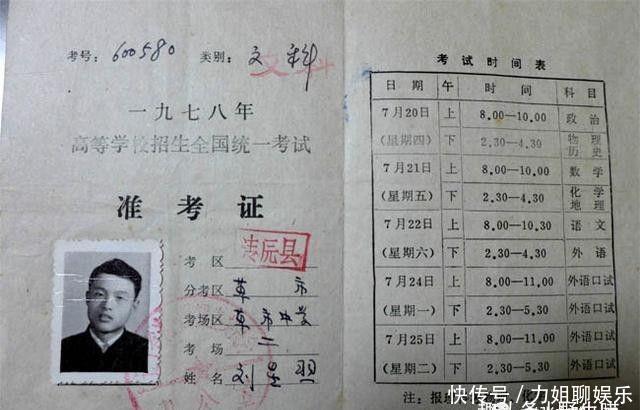 考号：600580 类别：文科
文科
一九七八年
高等学校招生全国统一考试
准考证
考区
分考区 草市
考场区 草市中学
考场 二
姓名
考试时间表
日期 午 时间 科目
7月20日 上 8.00—10.00 政治
（星期四） 下 2.30—4.30 物理 历史
7月21日 上 8.00—10.00 数学
（星期五） 下 2.30—4.30 化学 地理
7月22日 上 8.00—10.30 语文
（星期六） 下 2.30—4.30 外语
7月24日 上 8.00—11.00 外语口试
（星期一） 下 2.30—5.30 外语口试
7月25日 上 8.00—11.00 外语口试
（星期二） 下 2.30—5.30 外语口试
快传号／力姐聊娱乐